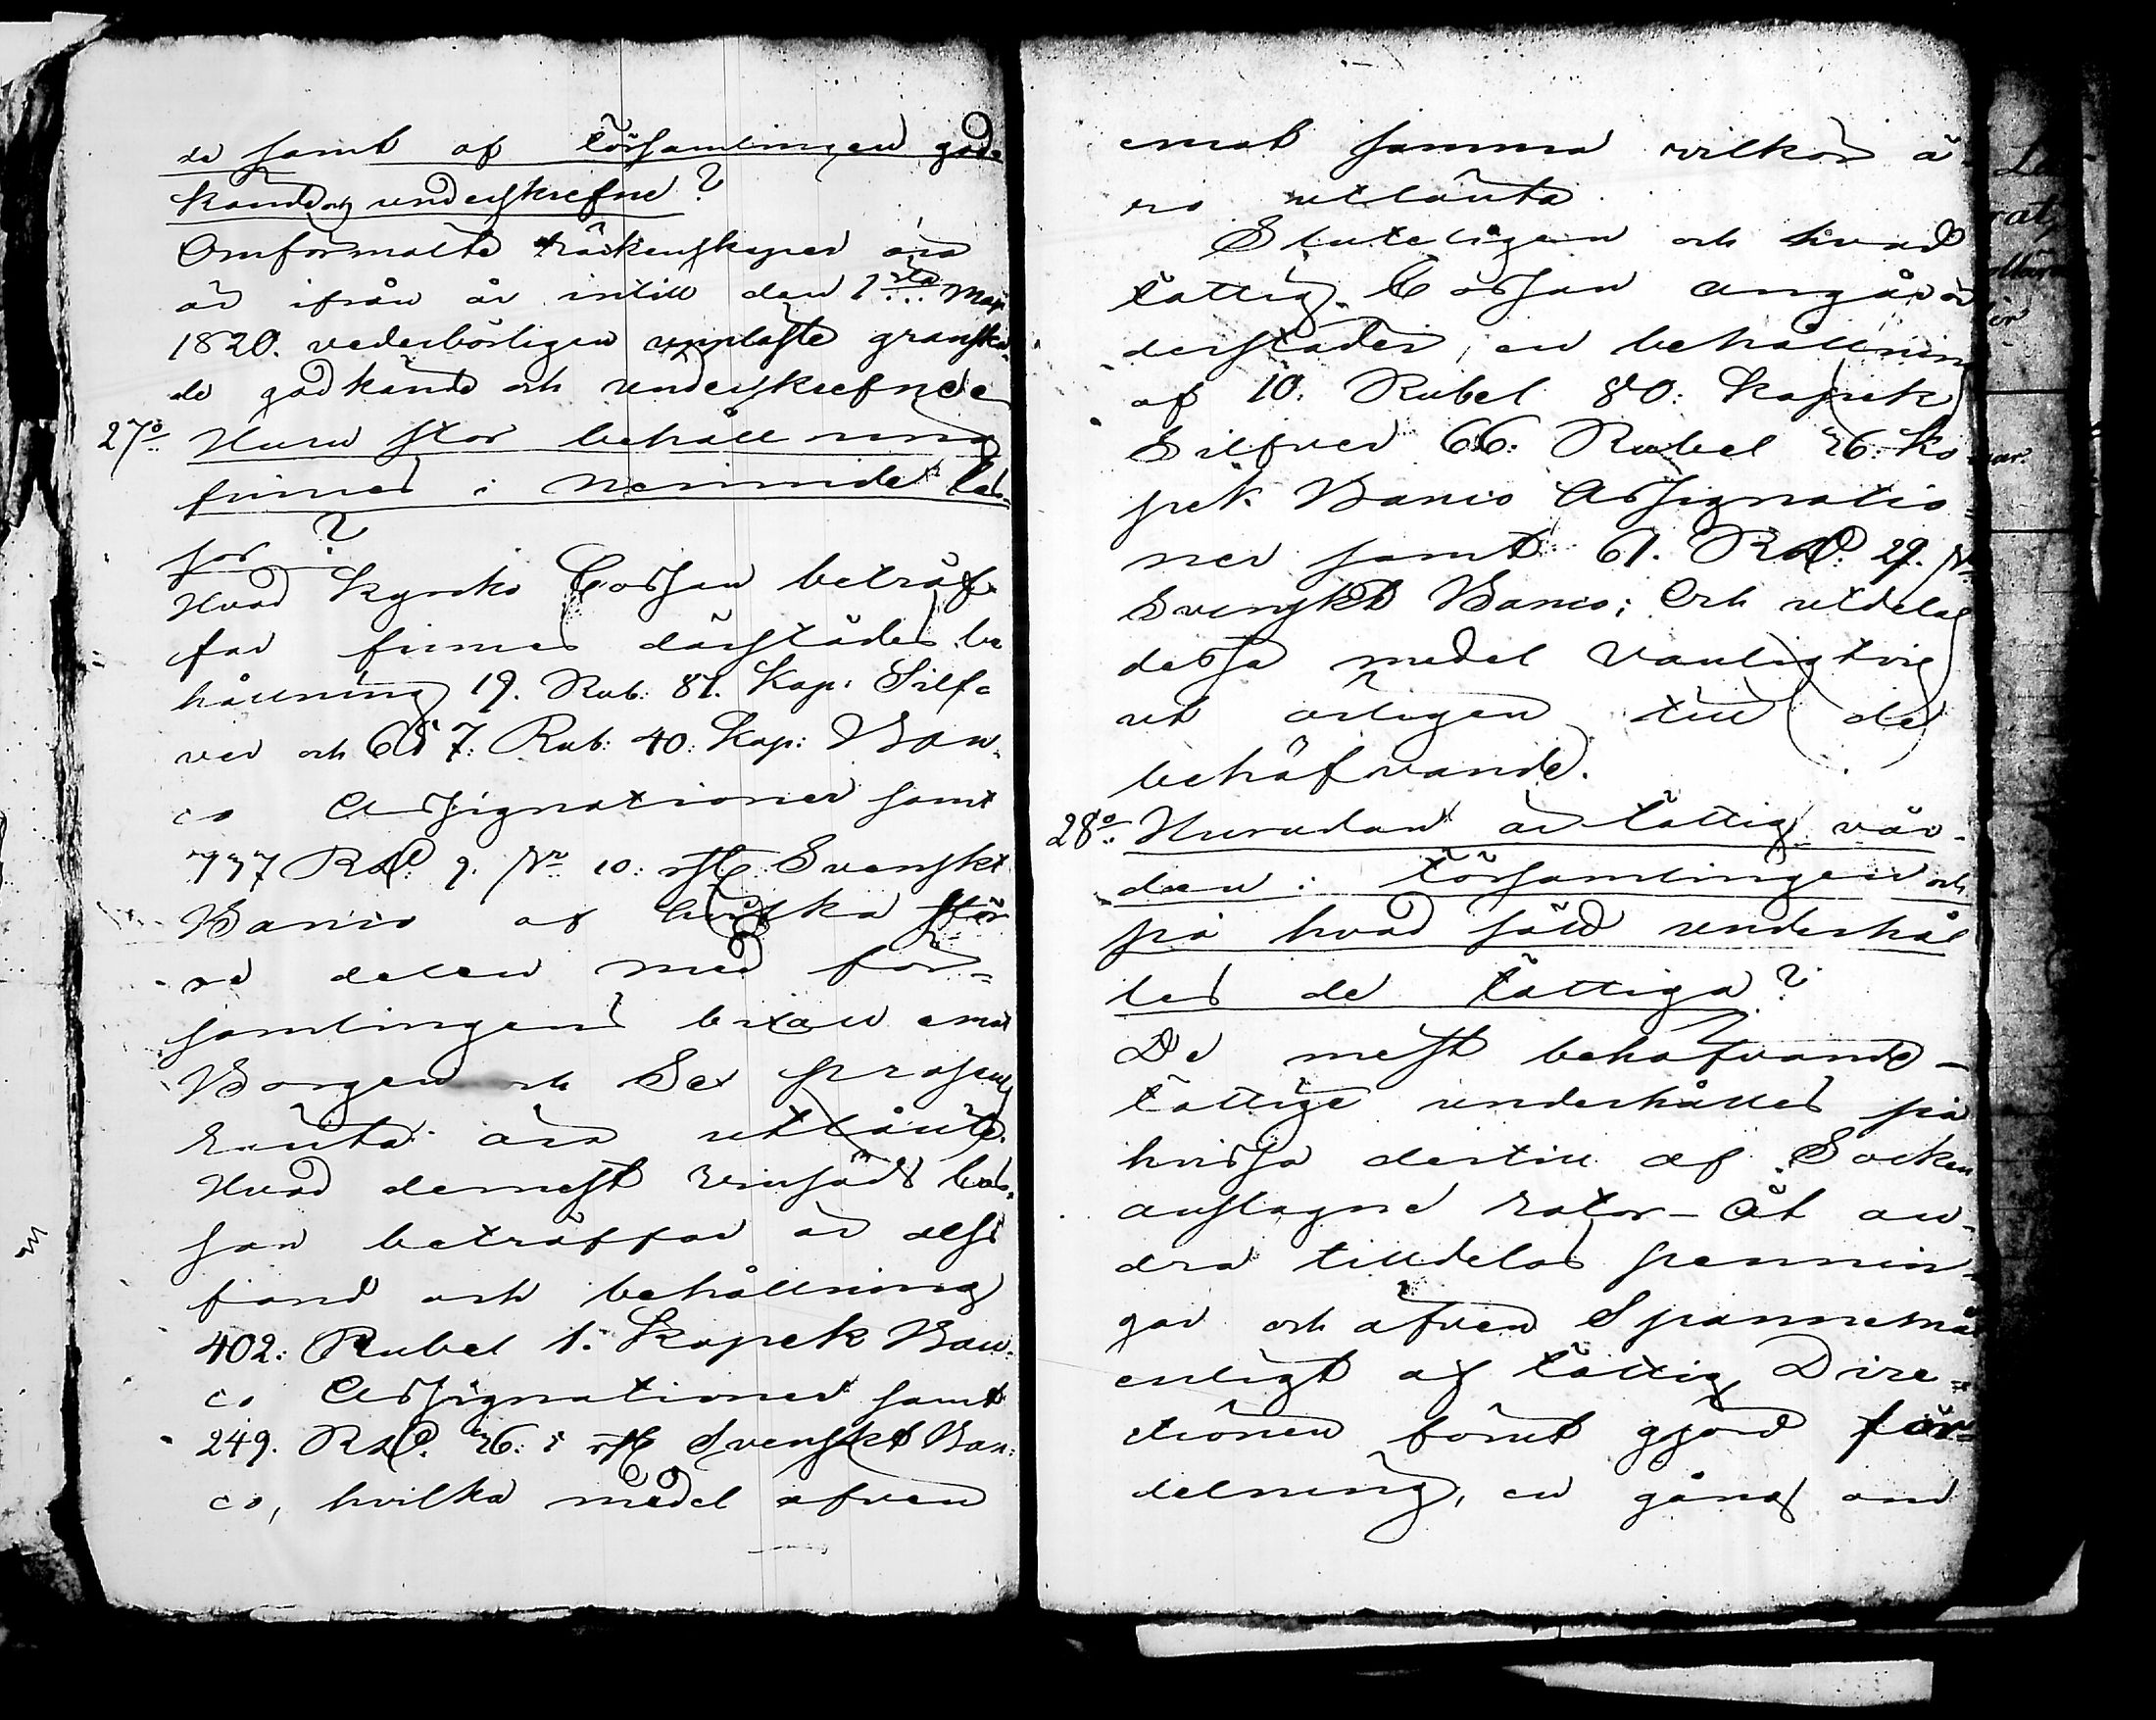 de samt af församlingen god-
kände och underskrefne?
Omförmälte räkenskaper äro
år ifrån år intill den 1sta Maji
1820. vederbörligen uppläste granska-
de godkände och underskrefne
27o Huru stor behållning
finnes i nemnide Cas-
sor?
Hvad Kyrko Cassan beträf-
far finnes därstädes be
hållning 19. Rub: 81. Kop: Silf-
ver och 657: Rub: 40: Kop: Ban-
co Assignationer samt
737 Rd. 9. 10: rst. Svenskt
Banco af hvilka stör
re delen med för-
samlingens bifall emot
Borgen och Sex procent
ränta äro utlånte.
Hvad dernest Cas-
san beträffar är dess
fond och behållning
402: Rubel 1. Kopek Ban-
co Assignationer samt
249. Rd. 26: 8 rst Svenskt Ban-
co, hvilka medel äfven
emot samma vilkor ä-
ro utlånta.
Sluteligen och hvad
fattig Cassan angår är
derstädes en behållning
af 10: Rubel 80: Kopek
Silfver 66: Rubel 26: Ko
pek Banco Assignatio-
ner samt 61. Rd. 29.
Svenskt Banco; Och utdelas
dessa medel vanligtvis
årligen till de
behöfvande.
28o Hurudan är fattig vår-
den i församlingen och
på hvad sätt underhål
les de fattiga?
De mest behöfvande
fattige underhålles på
hvissa dertill af Socken
anslagne rotar - Åt an-
dra tilldelas pennin-
gar och äfven Spannemål
enligt af fattig Dire-
ctionen förut gjord för-
delning, en gång om